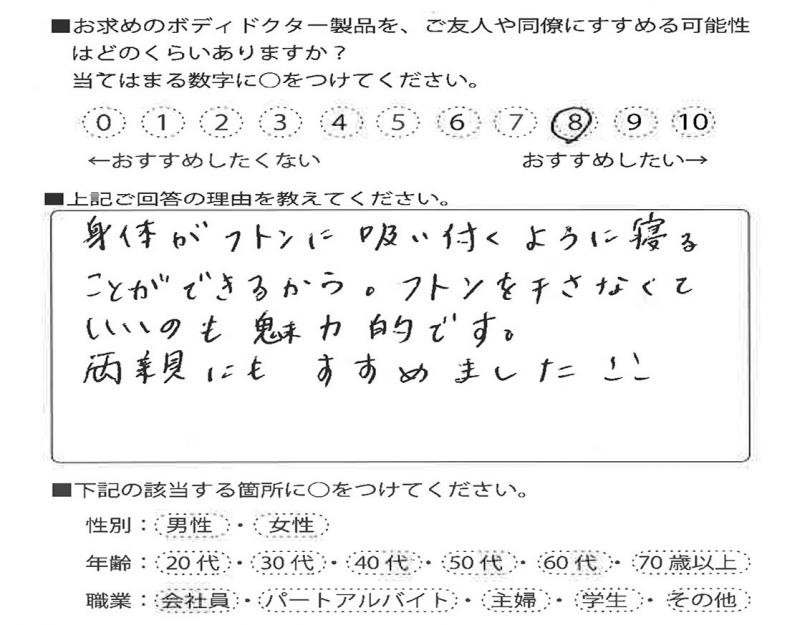 ■お求めのボディドクター製品を、ご友人や同僚にすすめる可能性
はどのくらいありますか？
当てはまる数字に○をつけてください。
0 1 2 3 4 5 6 7 8 9 10
←おすすめしたくない おすすめしたい→
■上記ご回答の理由を教えてください。
身体がフトンに吸い付くように寝る
ことができるから。フトンを干さなくて
いいのも魅力的です。
両親にもすすめました!!
■下記の該当する箇所に○をつけてください。
性別：男性・女性
年齢：20代・30代・40代・50代・60代・70歳以上
職業：会社員・パートアルバイト・主婦・学生・その他